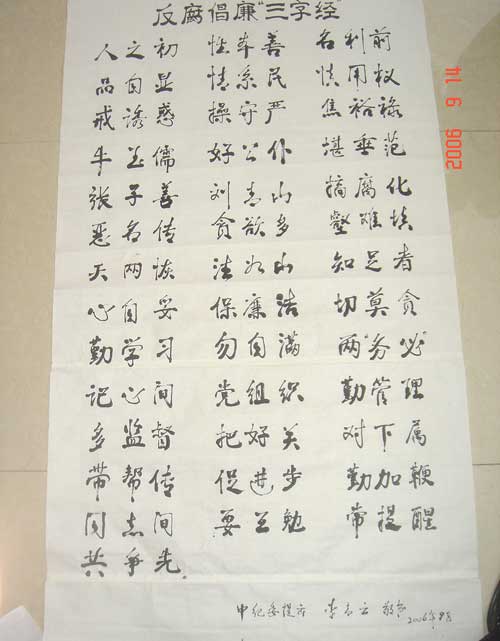 反腐倡廉"三字经"
人之初 性本善 名利前
品自显 情系民 慎用权
戒诱惑 操守严 焦裕禄
牛玉儒 好公仆 堪垂范
张子善 刘青山 搞腐化
恶名传 贪欲多 壑难填
天网恢 法如山 知足者
心自妥 保廉洁 切莫贪
勤学习 勿自满 两"务必"
记心间 党组织 勤管理
多监督 把好关 对下属
带帮传 促进步 勤加鞭
同志间 要互勉 常提醒
共争先
中纪委 李 2006年9月
2006 9 14